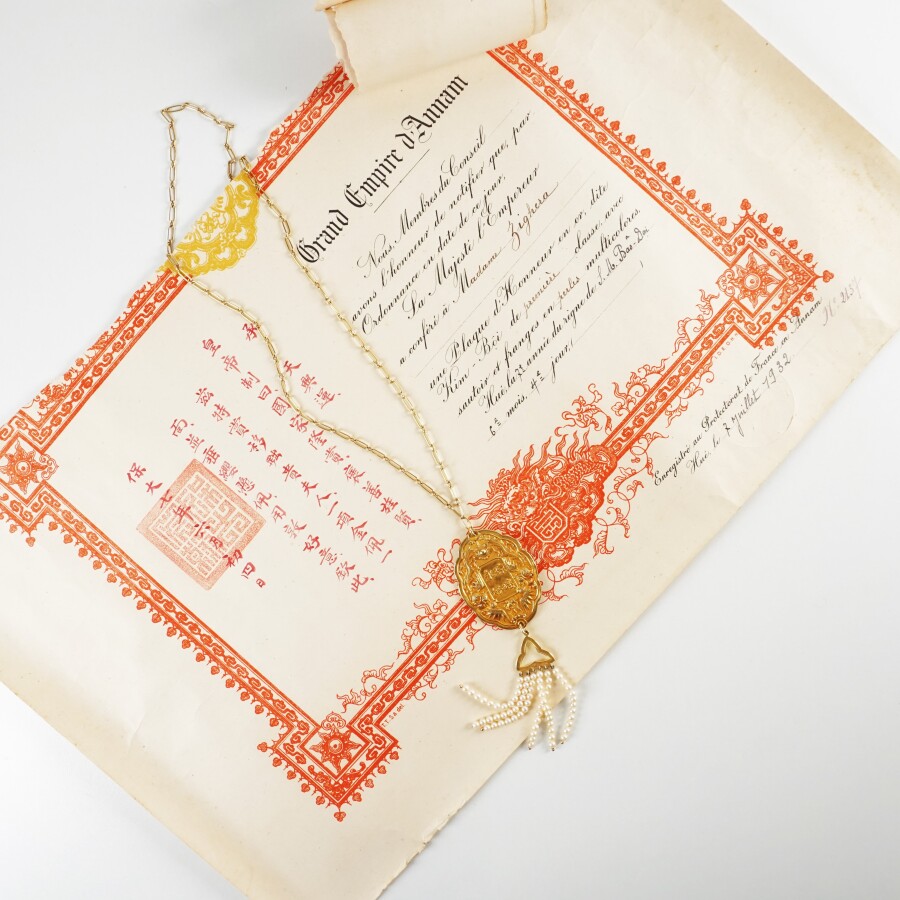 Grand Empire d'Annam
Nous Membres du Conseil
avons l'honneur de notifier que, par
Ordonnance en date de ce jour,
Sa Majesté l'Empereur
a conféré à Madame Zighera
une Plaque d'Honneur en or, dite
Kim-Bôi de première classe avec
sautoir et franges en perles multicolores.
Hué, la 7e année du règne de S. M. Bảo Đại
6e mois, 4e jour,
Enregistré au Protectorat de France en Annam
Nº 2157
Hué, le 7 Juillet 1932
承
天興運
皇帝制曰國家隆賞褒善旌賢
茲特賞移貴夫人一項金佩一
面並垂佩用好意欽此
保大七年六月初四日